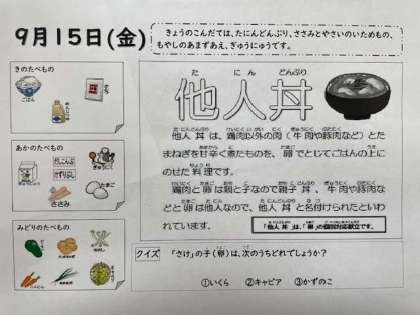 9月15日(金)
きょうのこんだては、たにんどんぶり、ささみとやさいのいためもの、
もやしのあまずあえ、ぎゅうにゅうです。
きのたべもの
ごはん
あかのたべもの
ささみ
たまご
みどりのたべもの
にんじん
た にん どんぶり
他人丼
他人丼は、鶏肉以外の肉(牛肉や豚肉など)とた
まねぎを甘辛く煮たものを、卵でとじてごはんの上に
のせた料理です。
鶏肉と卵は親と子なので親子丼、牛肉や豚肉な
どと卵は他人なので、他人丼と名付けられたといわ
れています。
「他人丼」は、「卵」の個別対応献立です。
クイズ 「さけ」の子(卵)は、次のうちどれでしょうか?
①いくら ②キャビア ③かずのこ